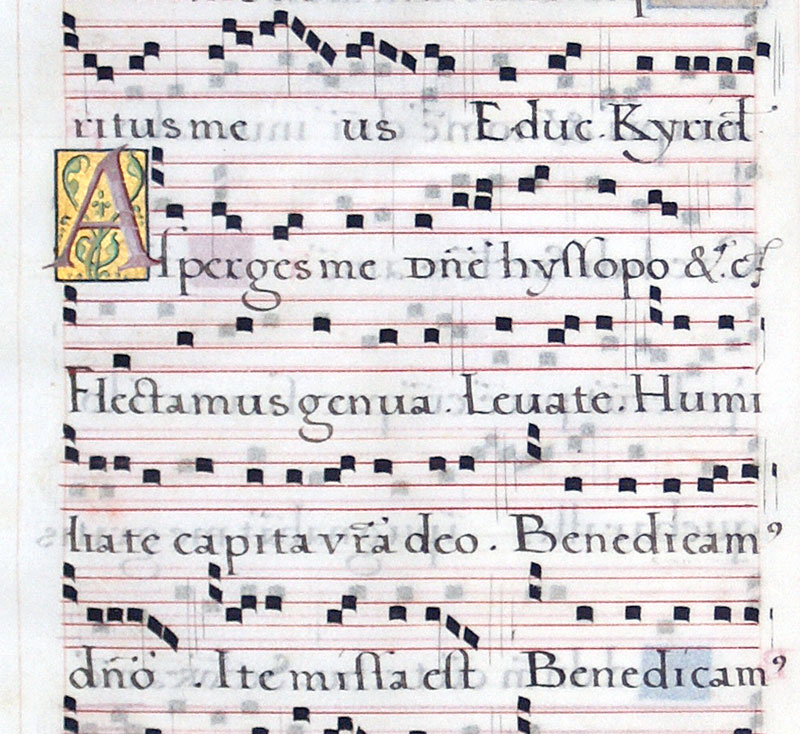 ritus me us Educ. Kyriel
Asperges me Dñe hyssopo &c. cf
Flectamus genua. Leuate. Humi
liate capita vr̃a deo. Benedicamꝰ
dño. Ite missa est Benedicamꝰ